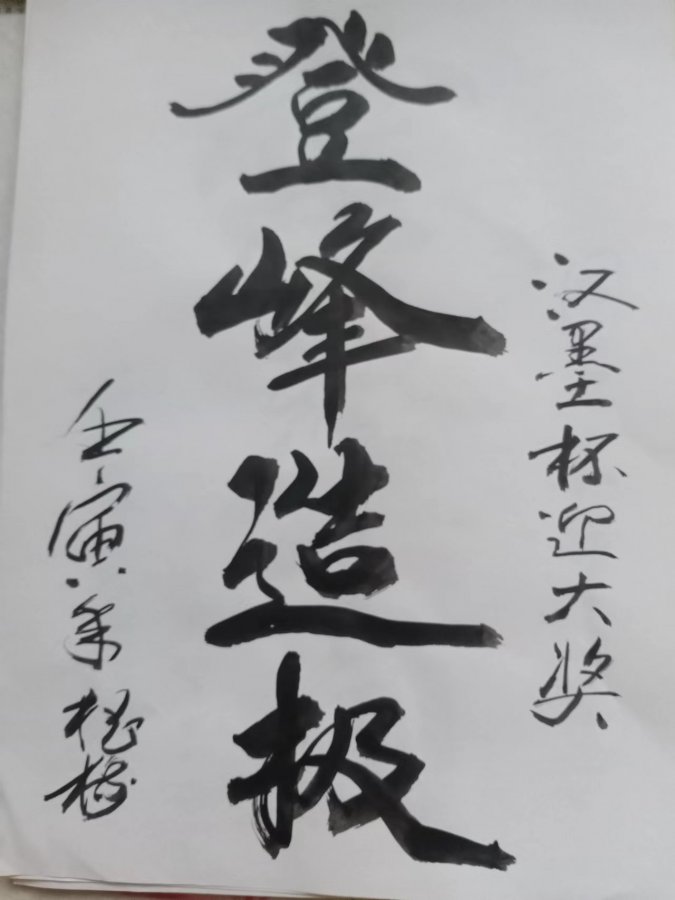 汉墨杯迎大奖
登峰造极
壬寅年